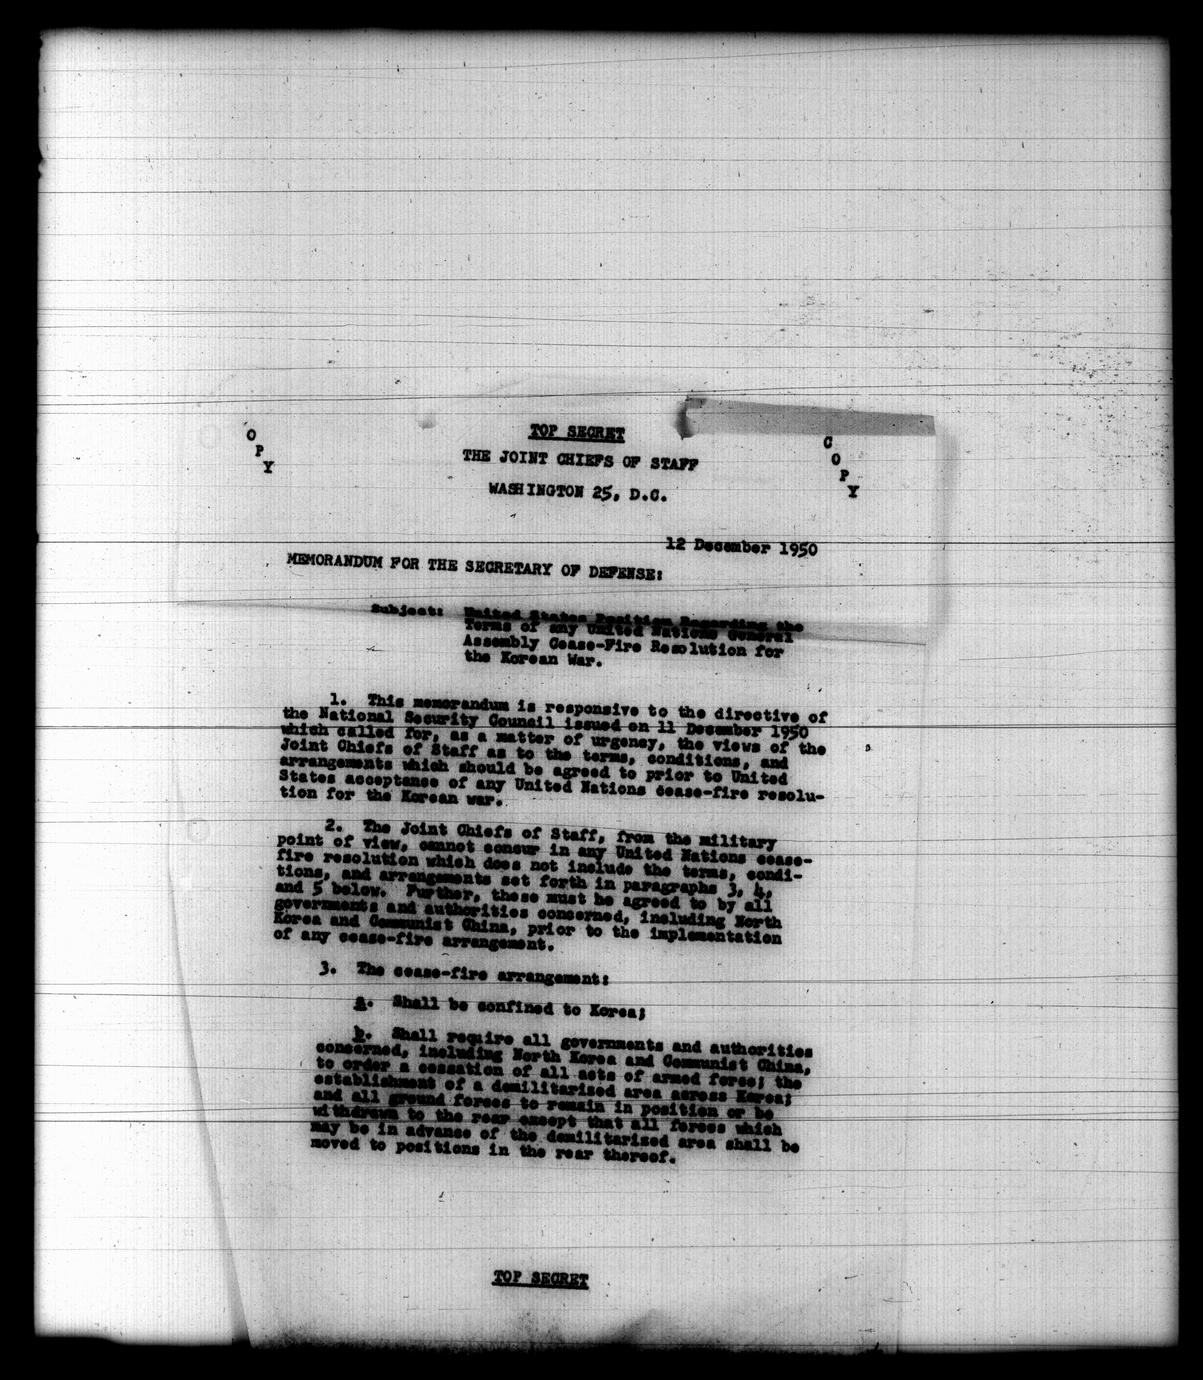 TOP SECRET
O
P
Y
C
O
P
Y
THE JOINT CHIEFS OF STAFF
WASHINGTON 25, D.C.
12 December 1950
MEMORANDUM FOR THE SECRETARY OF DEFENSE:
Subject: United States Position Regarding the
Terms of any United Nations General
Assembly Cease-Fire Resolution for
the Korean War.
1. This memorandum is responsive to the directive of
the National Security Council issued on 11 December 1950
which called for, as a matter of urgency, the views of the
Joint Chiefs of Staff as to the terms, conditions, and
arrangements which should be agreed to prior to United
States acceptance of any United Nations cease-fire resolu-
tion for the Korean war.
2. The Joint Chiefs of Staff, from the military
point of view, cannot concur in any United Nations cease-
fire resolution which does not include the terms, condi-
tions, and arrangements set forth in paragraphs 3, 4,
and 5 below. Further, these must be agreed to by all
governments and authorities concerned, including North
Korea and Communist China, prior to the implementation
of any cease-fire arrangement.
3. The cease-fire arrangement:
a. Shall be confined to Korea;
b. Shall require all governments and authorities
concerned, including North Korea and Communist China,
to order a cessation of all acts of armed force; the
establishment of a demilitarized area across Korea;
and all ground forces to remain in position or be
withdrawn to the rear except that all forces which
may be in advance of the demilitarized area shall be
moved to positions in the rear thereof.
TOP SECRET